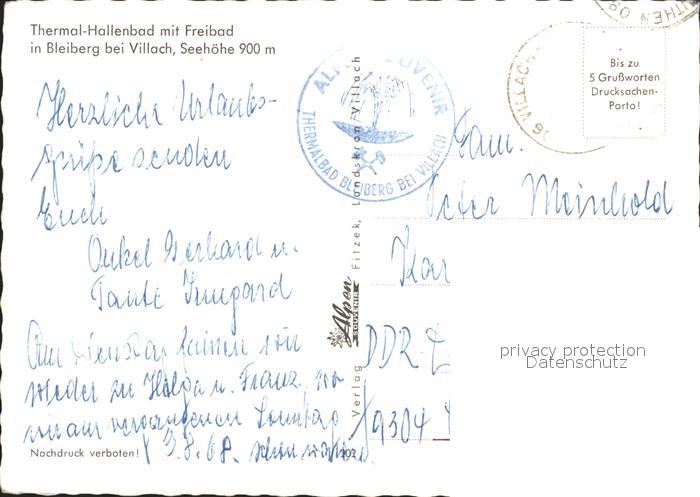 Thermal-Hallenbad mit Freibad
in Bleiberg bei Villach, Seehöhe 900 m
Herzliche Urlaubs-
grüße senden
Euch
Onkel Gerhard u.
Tante Irmgard
Am Dienstag fahren wir
wieder zu Helga u. Franz, wo
wir am vergangenen Sonntag
3.8.68. schon waren.
Nachdruck verboten!
ALPEN SOUVENIR
THERMALBAD BLEIBERG BEI VILLACH
Verlag
Alpen
SOUVENIR
Fitzek, Landskron/Villach
VILLACH
Bis zu
5 Grußworten
Drucksachen-
Porto!
Fam.
Peter Meinhold
Kar
DDR
9304
privacy protection
Datenschutz